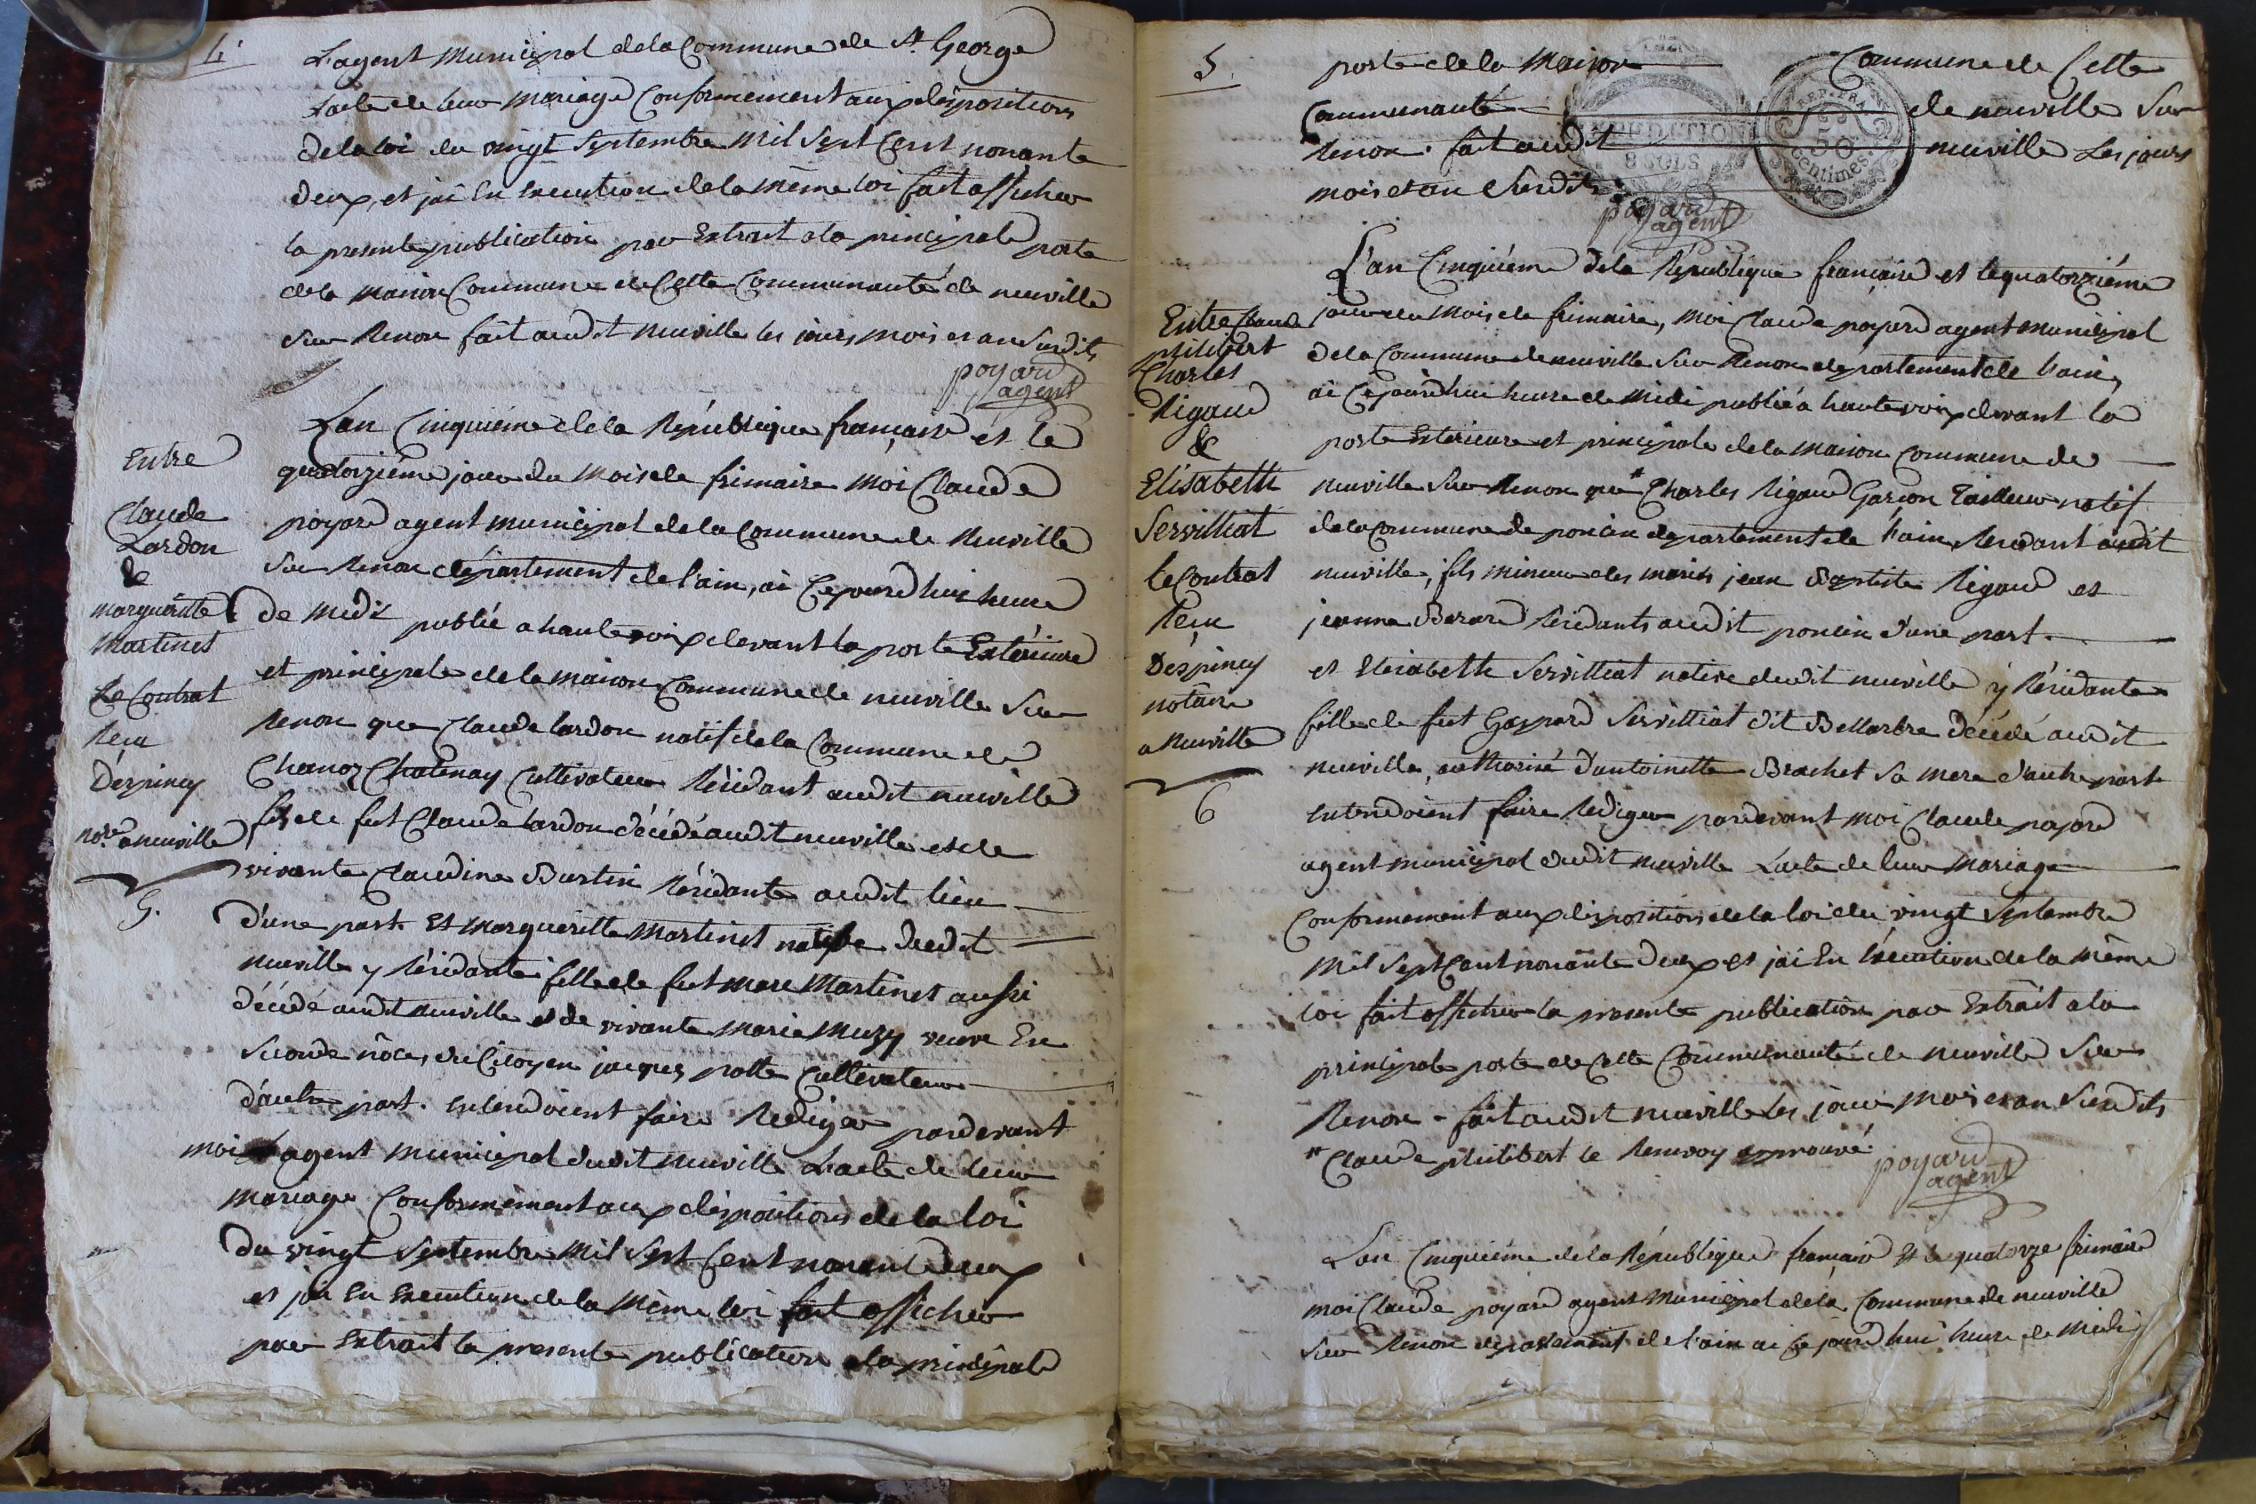 4.
L'agent Municipal de la Commune de St. George
L'acte de leur Mariage Conformement aux dispositions
de la loi du vingt Septembre Mil Sept Cent nonante
deux, et jai En Execution de la Même loi fait afficher
la presente publication par Extrait a la principale porte
de la Maison Commune de Cette Communauté de neuville
Sur Renon fait audit Neuville les jours, mois et an Susdits
poyard
agent
Entre
Claude
Lardon
&
margueritte
Martinet
Le Contrat
Reçu
Dérpincy
no.re a neuville
5.
L'an Cinquiéme de la République française et le
quatorziéme jour du Mois de frimaire Moi Claude
poyard agent municipal de la Commune de Neuville
Sur Renon département de l'ain, ai Cejourd'hui heure
de Midi publié a haute voix devant la porte Extérieure
et principale de la maison Commune de neuville Sur
Renon que Claude lardon natif de la Commune de
Chanoz Chatenay Cultivateur Résidant audit neuville
fils de fut Claude lardon décédé audit neuville et de
vivante Claudine Burtin Résidante audit lieu
d'une part. Et Margueritte Martinet native dudit
neuville y Résidante fille de fut Marc Martinet aussi
décédé audit neuville et de vivante Marie Muzy veuve En
Seconde nôces du Citoyen jacques potte Cultivateur
d'autre part. entendoient faire Rediger pardevant
moi agent Municipal dudit neuville L'acte de leur
Mariage Conformement aux dispositions de la loi
du vingt Septembre Mil Sept Cent nonante deux
et jai En Execution de la Même loi fait afficher
par Extrait la presente publication a la principale
5.
porte de la Maison Commune de Cette
Communauté de neuville Sur
Renon. fait audit neuville Les jours
mois et an Susdits
EXPEDITION
8 SOLS
REP. FRA.
50
centimes.
poyard
agent
Entre Claude
philibert
Charles
Rigaud
&
Elisabeth
Servilliat
le Contrat
Reçu
Dérpincy
notaire
a Neuville
6
L'an Cinquiéme de la République française et le quatorziéme
jour du Mois de frimaire, Moi Claude poyard agent Municipal
de la Commune de neuville Sur Renon département de l'ain,
ai Cejourd'hui heure de Midi publié a haute voix devant la
porte Exterieure et principale de la maison Commune de
neuville Sur Renon que * Charles Rigaud Garçon Tailleur natif
de la Commune de poncin departement de l'ain, Residant audit
neuville, fils mineur des mariés jean Baptiste Rigaud et
jeanne Berard Résidants audit poncin d'une part.
et Elisabeth Servilliat native dudit neuville y Résidante
fille de fut Gaspard Servilliat dit Bellarbre décédé audit
neuville, authorisé d'antoinette Brachet Sa mere d'autre part
entendoient faire Rediger pardevant moi Claude poyard
agent municipal dudit Neuville L'acte de leur Mariage
Conformement aux dispositions de la loi du vingt Septembre
Mil Sept Cent nonante deux et jai En Execution de la Même
loi fait afficher la presente publication par Extrait a la
principale porte de Cette Communauté de neuville Sur
Renon - fait audit neuville les jour Mois et an Susdits
* Claude philibert le Renvoy approuvé
poyard
agent
L'an Cinquiéme de la République français Et le quatorze frimaire
moi Claude poyard agent Municipal de la Commune de neuville
Sur Renon departement de l'ain ai Cejourd'hui heure de Midi